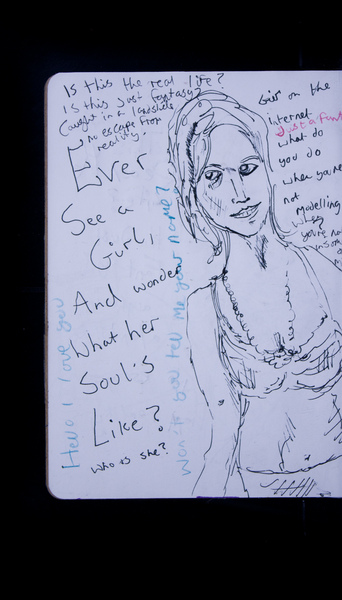 Is this the real life?
Is this just fantasy?
Caught in a landslide
no escape from
reality.
Ever
See a
Girl,
And wonder
What her
Soul's
Like?
Who is she?
Hello I love you
Won't you tell me your name?
Girl on the
Internet
Just a
What do
you do
when you're
not
modelling
When
you're not